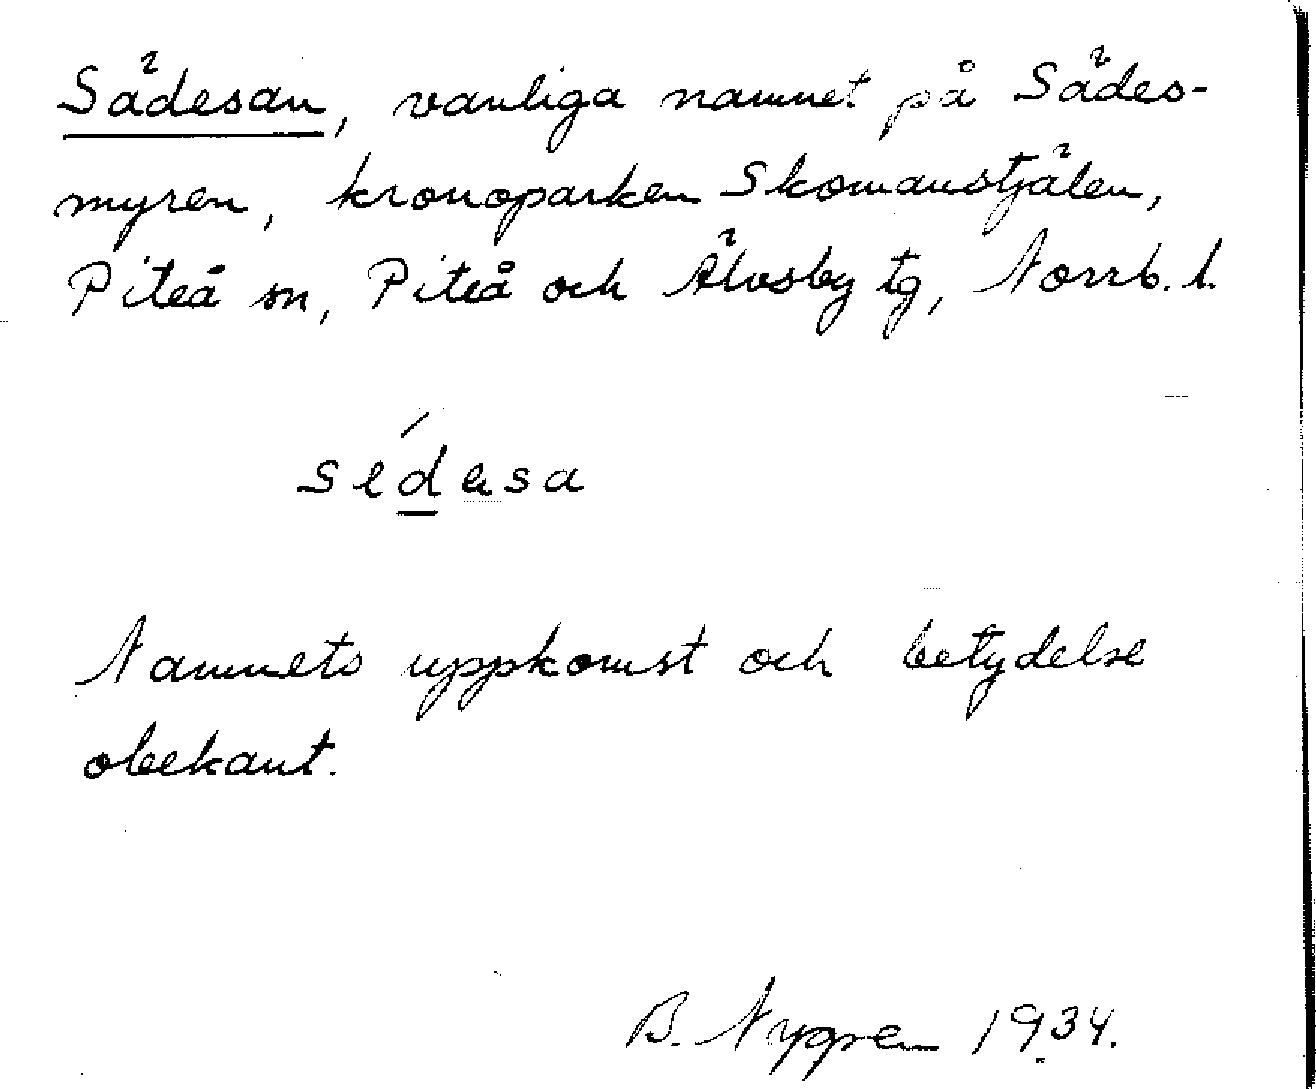 Sädesan, vanliga namnet på Sädes-
myren, kronoparken Skomanstjälen,
Piteå sn, Piteå och Älvsby tg, Norrb. l.
sédasa
Namnets uppkomst och betydelse
obekant.
B. Nygren 1934.